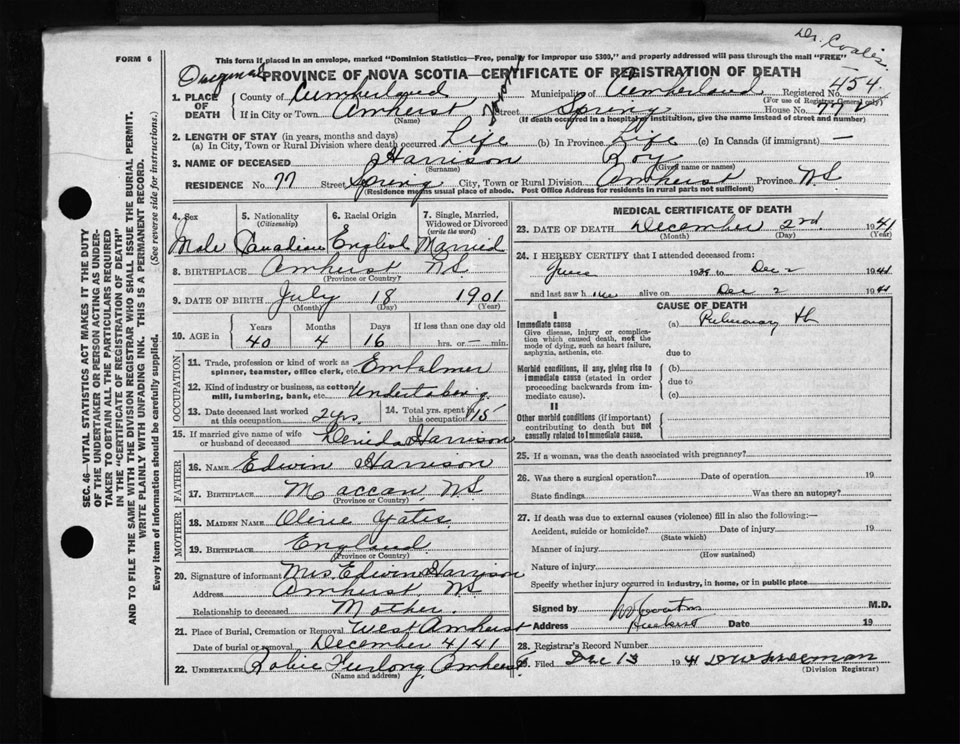 Dr. Coates
FORM 6
This form if placed in an envelope, marked "Dominion Statistics—Free, penalty for improper use $300," and properly addressed will pass through the mail "FREE"
Original
PROVINCE OF NOVA SCOTIA—CERTIFICATE OF REGISTRATION OF DEATH
1. PLACE OF DEATH
County of Cumberland Municipality of Cumberland Registered No. 454
(For use of Registrar General only)
If in City or Town Amherst Street Spring House No. 77
(Name) (If death occurred in a hospital or institution, give the name instead of street and number)
2. LENGTH OF STAY (in years, months and days)
(a) In City, Town or Rural Division where death occurred Life (b) In Province Life (c) In Canada (if immigrant) —
3. NAME OF DECEASED Harrison Roy
(Surname) (Given name or names)
RESIDENCE No. 77 Street Spring City, Town or Rural Division Amherst Province NS
(Residence means usual place of abode. Post Office Address for residents in rural parts not sufficient)
4. Sex
Male
5. Nationality
(Citizenship)
Canadian
6. Racial Origin
English
7. Single, Married, Widowed or Divorced
(write the word)
Married
8. BIRTHPLACE Amherst NS
(Province or Country)
9. DATE OF BIRTH July 18 1901
(Month) (Day) (Year)
10. AGE in Years Months Days If less than one day old
40 4 16 hrs. or — min.
OCCUPATION
11. Trade, profession or kind of work as spinner, teamster, office clerk, etc. Embalmer
12. Kind of industry or business, as cotton mill, lumbering, bank, etc. Undertaking
13. Date deceased last worked at this occupation 2 yrs
14. Total yrs. spent in this occupation 15
15. If married give name of wife or husband of deceased Harrison
FATHER
16. NAME Edwin Harrison
17. BIRTHPLACE Maccan, NS
(Province or Country)
MOTHER
18. MAIDEN NAME Olive Yates
19. BIRTHPLACE England
(Province or Country)
20. Signature of informant Mrs. Edwin Harrison
Address Amherst, NS
Relationship to deceased Mother.
21. Place of Burial, Cremation or Removal West Amherst
Date of burial or removal December 4/41
22. UNDERTAKER Robie Furlong, Amherst
(Name and address)
MEDICAL CERTIFICATE OF DEATH
23. DATE OF DEATH December 2nd 1941
(Month) (Day) (Year)
24. I HEREBY CERTIFY that I attended deceased from:
June 1939 to Dec 2 1941
and last saw him alive on Dec 2 1941
CAUSE OF DEATH
I
Immediate cause
Give disease, injury or complication which caused death, not the mode of dying, such as heart failure, asphyxia, asthenia, etc.
(a) Pulmonary tb
due to
Morbid conditions, if any, giving rise to immediate cause (stated in order proceeding backwards from immediate cause).
(b)
due to
(c)
II
Other morbid conditions (if important) contributing to death but not causally related to immediate cause.
25. If a woman, was the death associated with pregnancy?
26. Was there a surgical operation? Date of operation 19
State findings Was there an autopsy?
27. If death was due to external causes (violence) fill in also the following:—
Accident, suicide or homicide? Date of injury 19
(State which)
Manner of injury
(How sustained)
Nature of injury
Specify whether injury occurred in industry, in home, or in public place
Signed by M.D.
Address Amherst Date 19
28. Registrar's Record Number
29. Filed Dec 13 1941
(Division Registrar)
SEC. 46—VITAL STATISTICS ACT MAKES IT THE DUTY
OF THE UNDERTAKER OR PERSON ACTING AS UNDER-
TAKER TO OBTAIN ALL THE PARTICULARS REQUIRED
IN THE "CERTIFICATE OF REGISTRATION OF DEATH"
AND TO FILE THE SAME WITH THE DIVISION REGISTRAR WHO SHALL ISSUE THE BURIAL PERMIT.
WRITE PLAINLY WITH UNFADING INK. THIS IS A PERMANENT RECORD.
Every item of information should be carefully supplied. (See reverse side for instructions.)